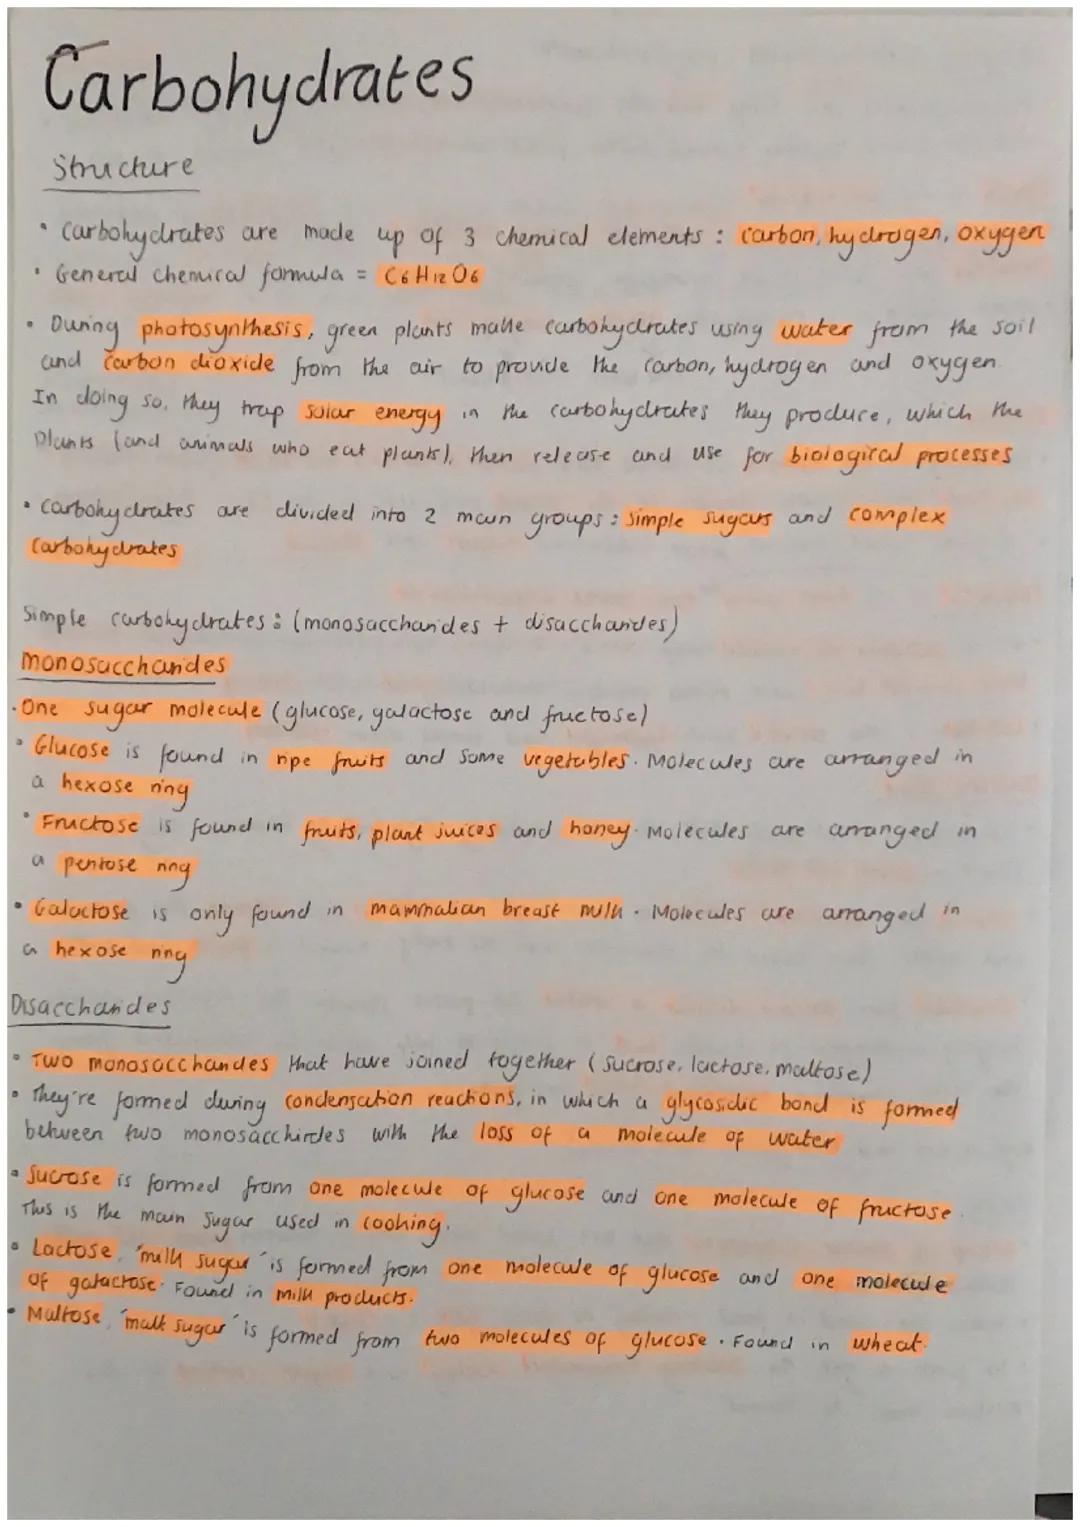 Carbohydrates
Structure
• Carbohydrates are made up of 3 chemical elements : carbon, hydrogen, oxygen
• General chemical formula = C6 H12 O6
• During photosynthesis, green plants make carbohydrates using water from the soil
and carbon dioxide from the air to provide the carbon, hydrogen and oxygen.
In doing so, they trap solar energy in the carbohydrates they produce, which the
plants (and animals who eat plants), then release and use for biological processes
• Carbohydrates are divided into 2 main groups : simple sugars and complex
carbohydrates
Simple carbohydrates : (monosaccharides + disaccharides)
monosaccharides
• One sugar molecule (glucose, galactose and fructose)
• Glucose is found in ripe fruits and some vegetables. Molecules are arranged in
a hexose ring
• Fructose is found in fruits, plant juices and honey. Molecules are arranged in
a pentose ring
• Galactose is only found in mammalian breast milk. Molecules are arranged in
a hexose ring
Disaccharides
• Two monosaccharides that have joined together (sucrose, lactose, maltose)
• They're formed during condensation reactions, in which a glycosidic bond is formed
between two monosacchirdes with the loss of a molecule of water
• Sucrose is formed from one molecule of glucose and one molecule of fructose.
This is the main sugar used in cooking.
• Lactose, 'milk sugar' is formed from one molecule of glucose and one molecule
of galactose. Found in milk products.
• Maltose, 'malt sugar' is formed from two molecules of glucose. Found in wheat.